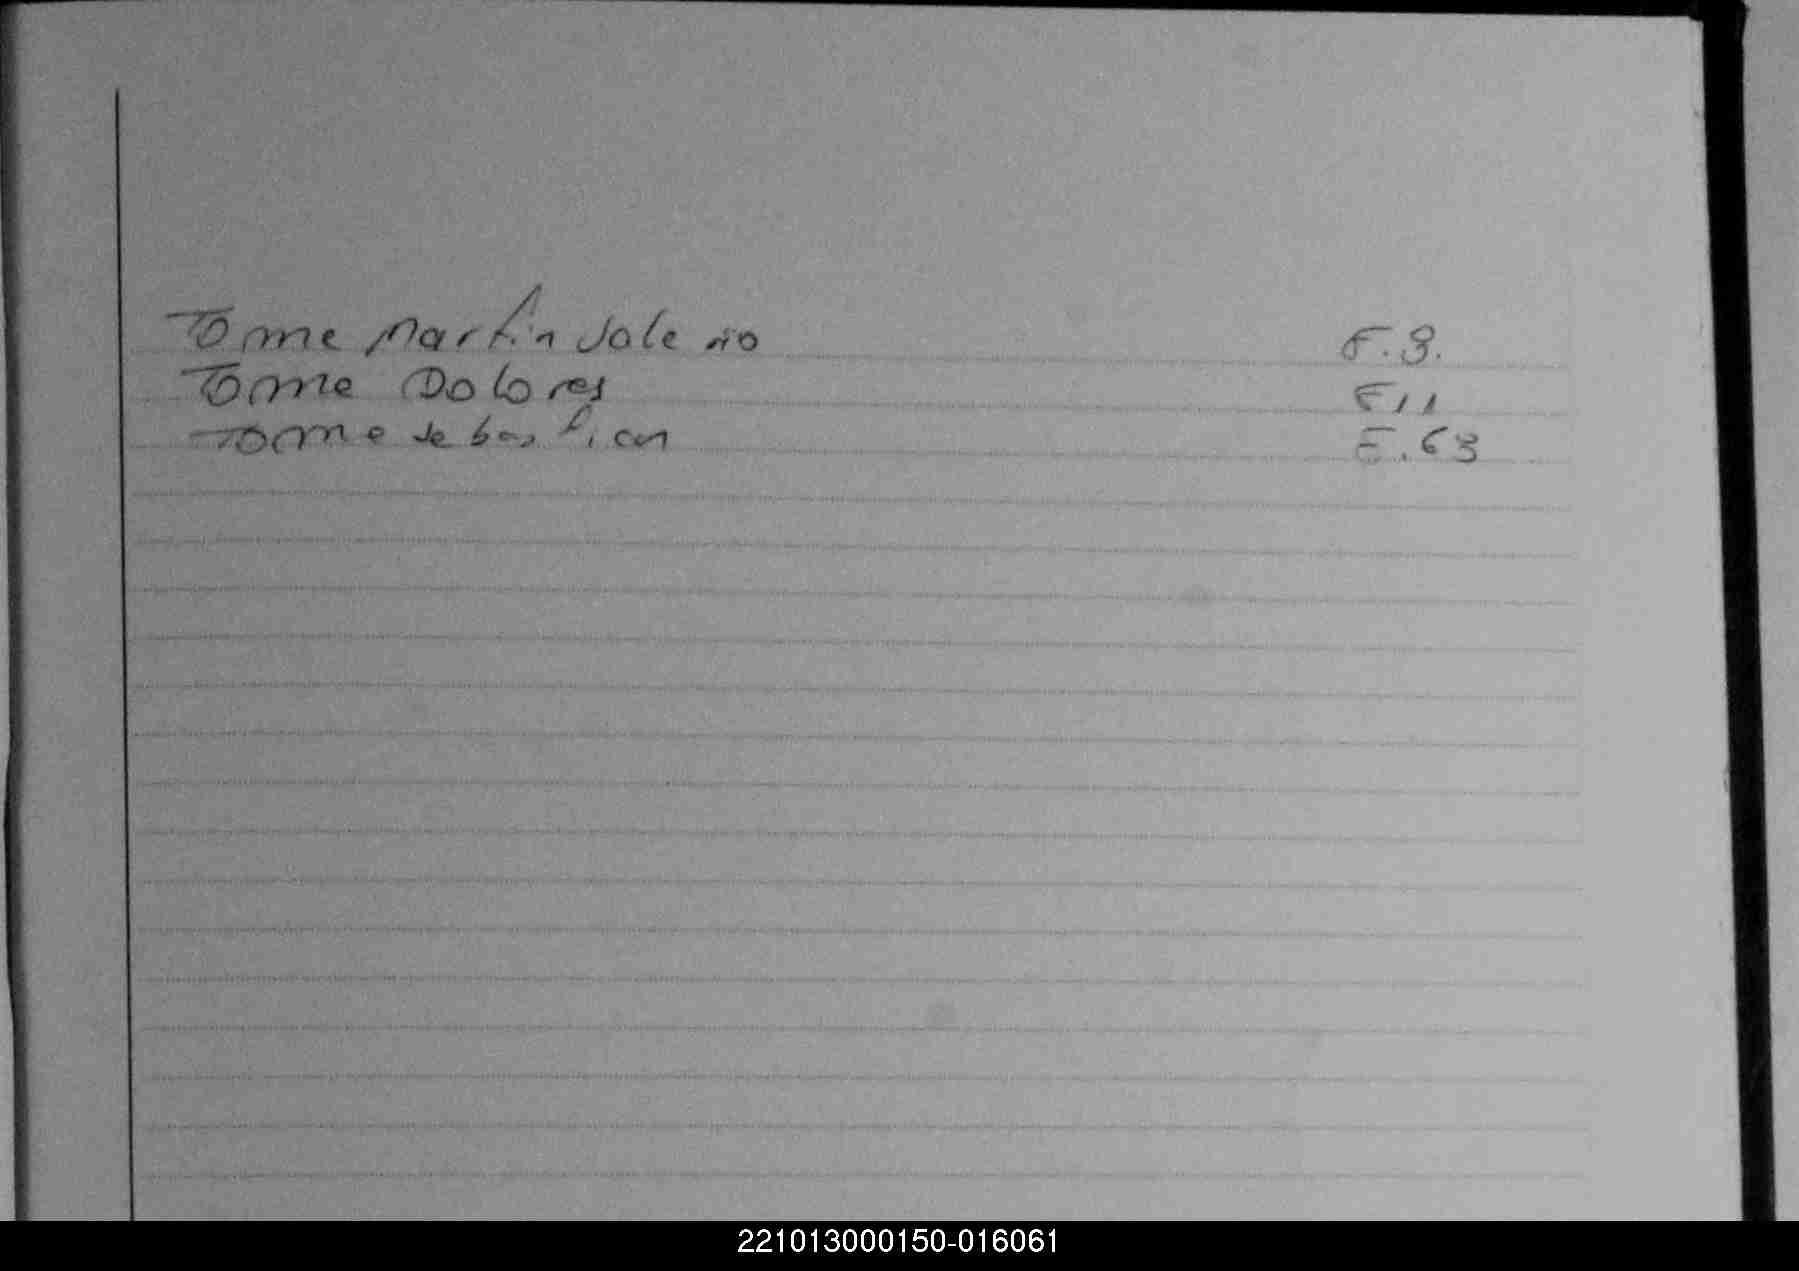 Tome Martin Valerio F. 9.
Tome Dolores F 11
Tome Sebastian F. 63
221013000150-016061